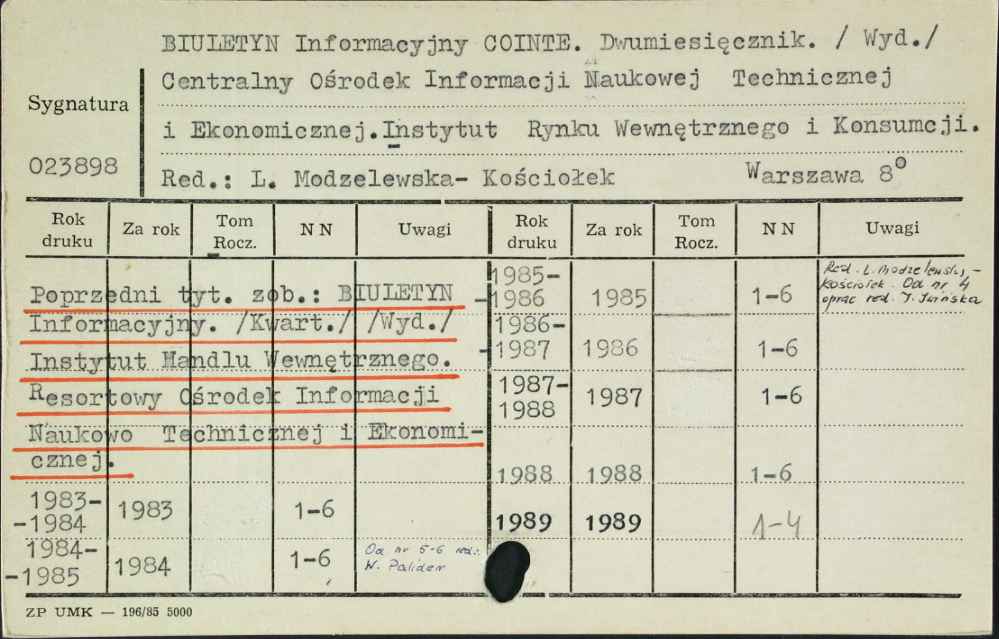 BIULETYN Informacyjny COINTE. Dwumiesięcznik. / Wyd./
Centralny Ośrodek Informacji Naukowej Technicznej
Sygnatura
i Ekonomicznej. Instytut Rynku Wewnętrznego i Konsumcji.
023898
Red.: L. Modzelewska- Kościołek Warszawa 8°
Rok druku Za rok Tom Rocz. N N Uwagi Rok druku Za rok Tom Rocz. N N Uwagi
Poprzedni tyt. zob.: BIULETYN
Informacyjny. /Kwart./ /Wyd./
Instytut Handlu Wewnętrznego.
Resortowy Ośrodek Informacji
Naukowo Technicznej i Ekonomi-
cznej.
1983-
-1984 1983 1-6
1984-
-1985 1984 1-6 Od nr 5-6 red.:
W.
1985-
-1986 1985 1-6 Red. L. Modzelewska-
Kościołek. Od nr 4
oprac red. J.
1986-
-1987 1986 1-6
1987-
1988 1987 1-6
1988 1988 1-6
1989 1989 1-4
ZP UMK — 196/85 5000